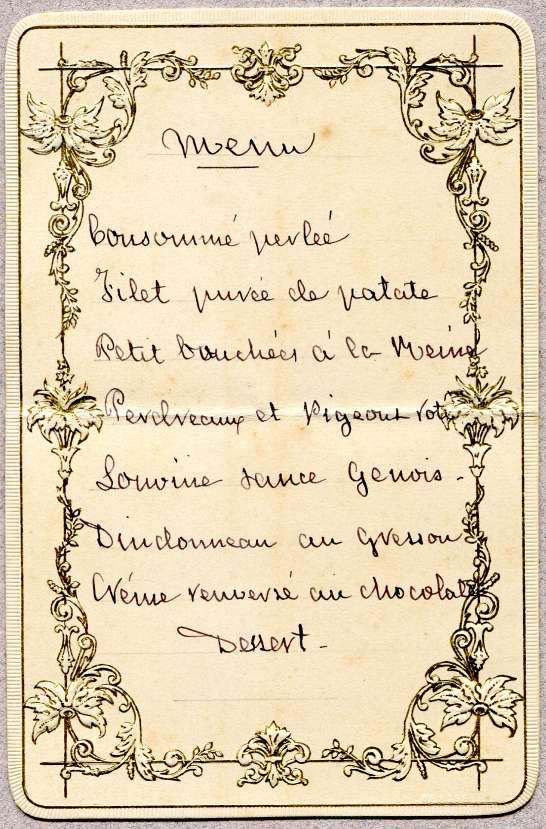 Menu
Consommé perleé
Filet purée de patate
Petit bouchées à la Reine
Perdreaux et Pigeons roti
Louvine sauce Genois -
Dindonneau au Cresson
Créme renversé au chocolate
Dessert -